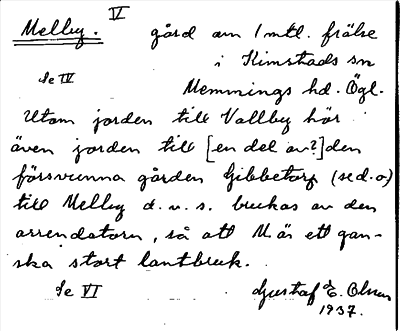 Melby. V gård am 1 mtl. frälse
i Kimstads sn
Se IV Memmings hd. Ögl.
Utom jorden till Vallby hör
även jorden till [en del av?] den
försvunna gården Gibbetorp (se d.o)
till Melby d.v.s. brukas av den
arrendatorn, så att M. är ett gan-
ska stort lantbruk.
Se VI Gustaf E. Olsson
1937.